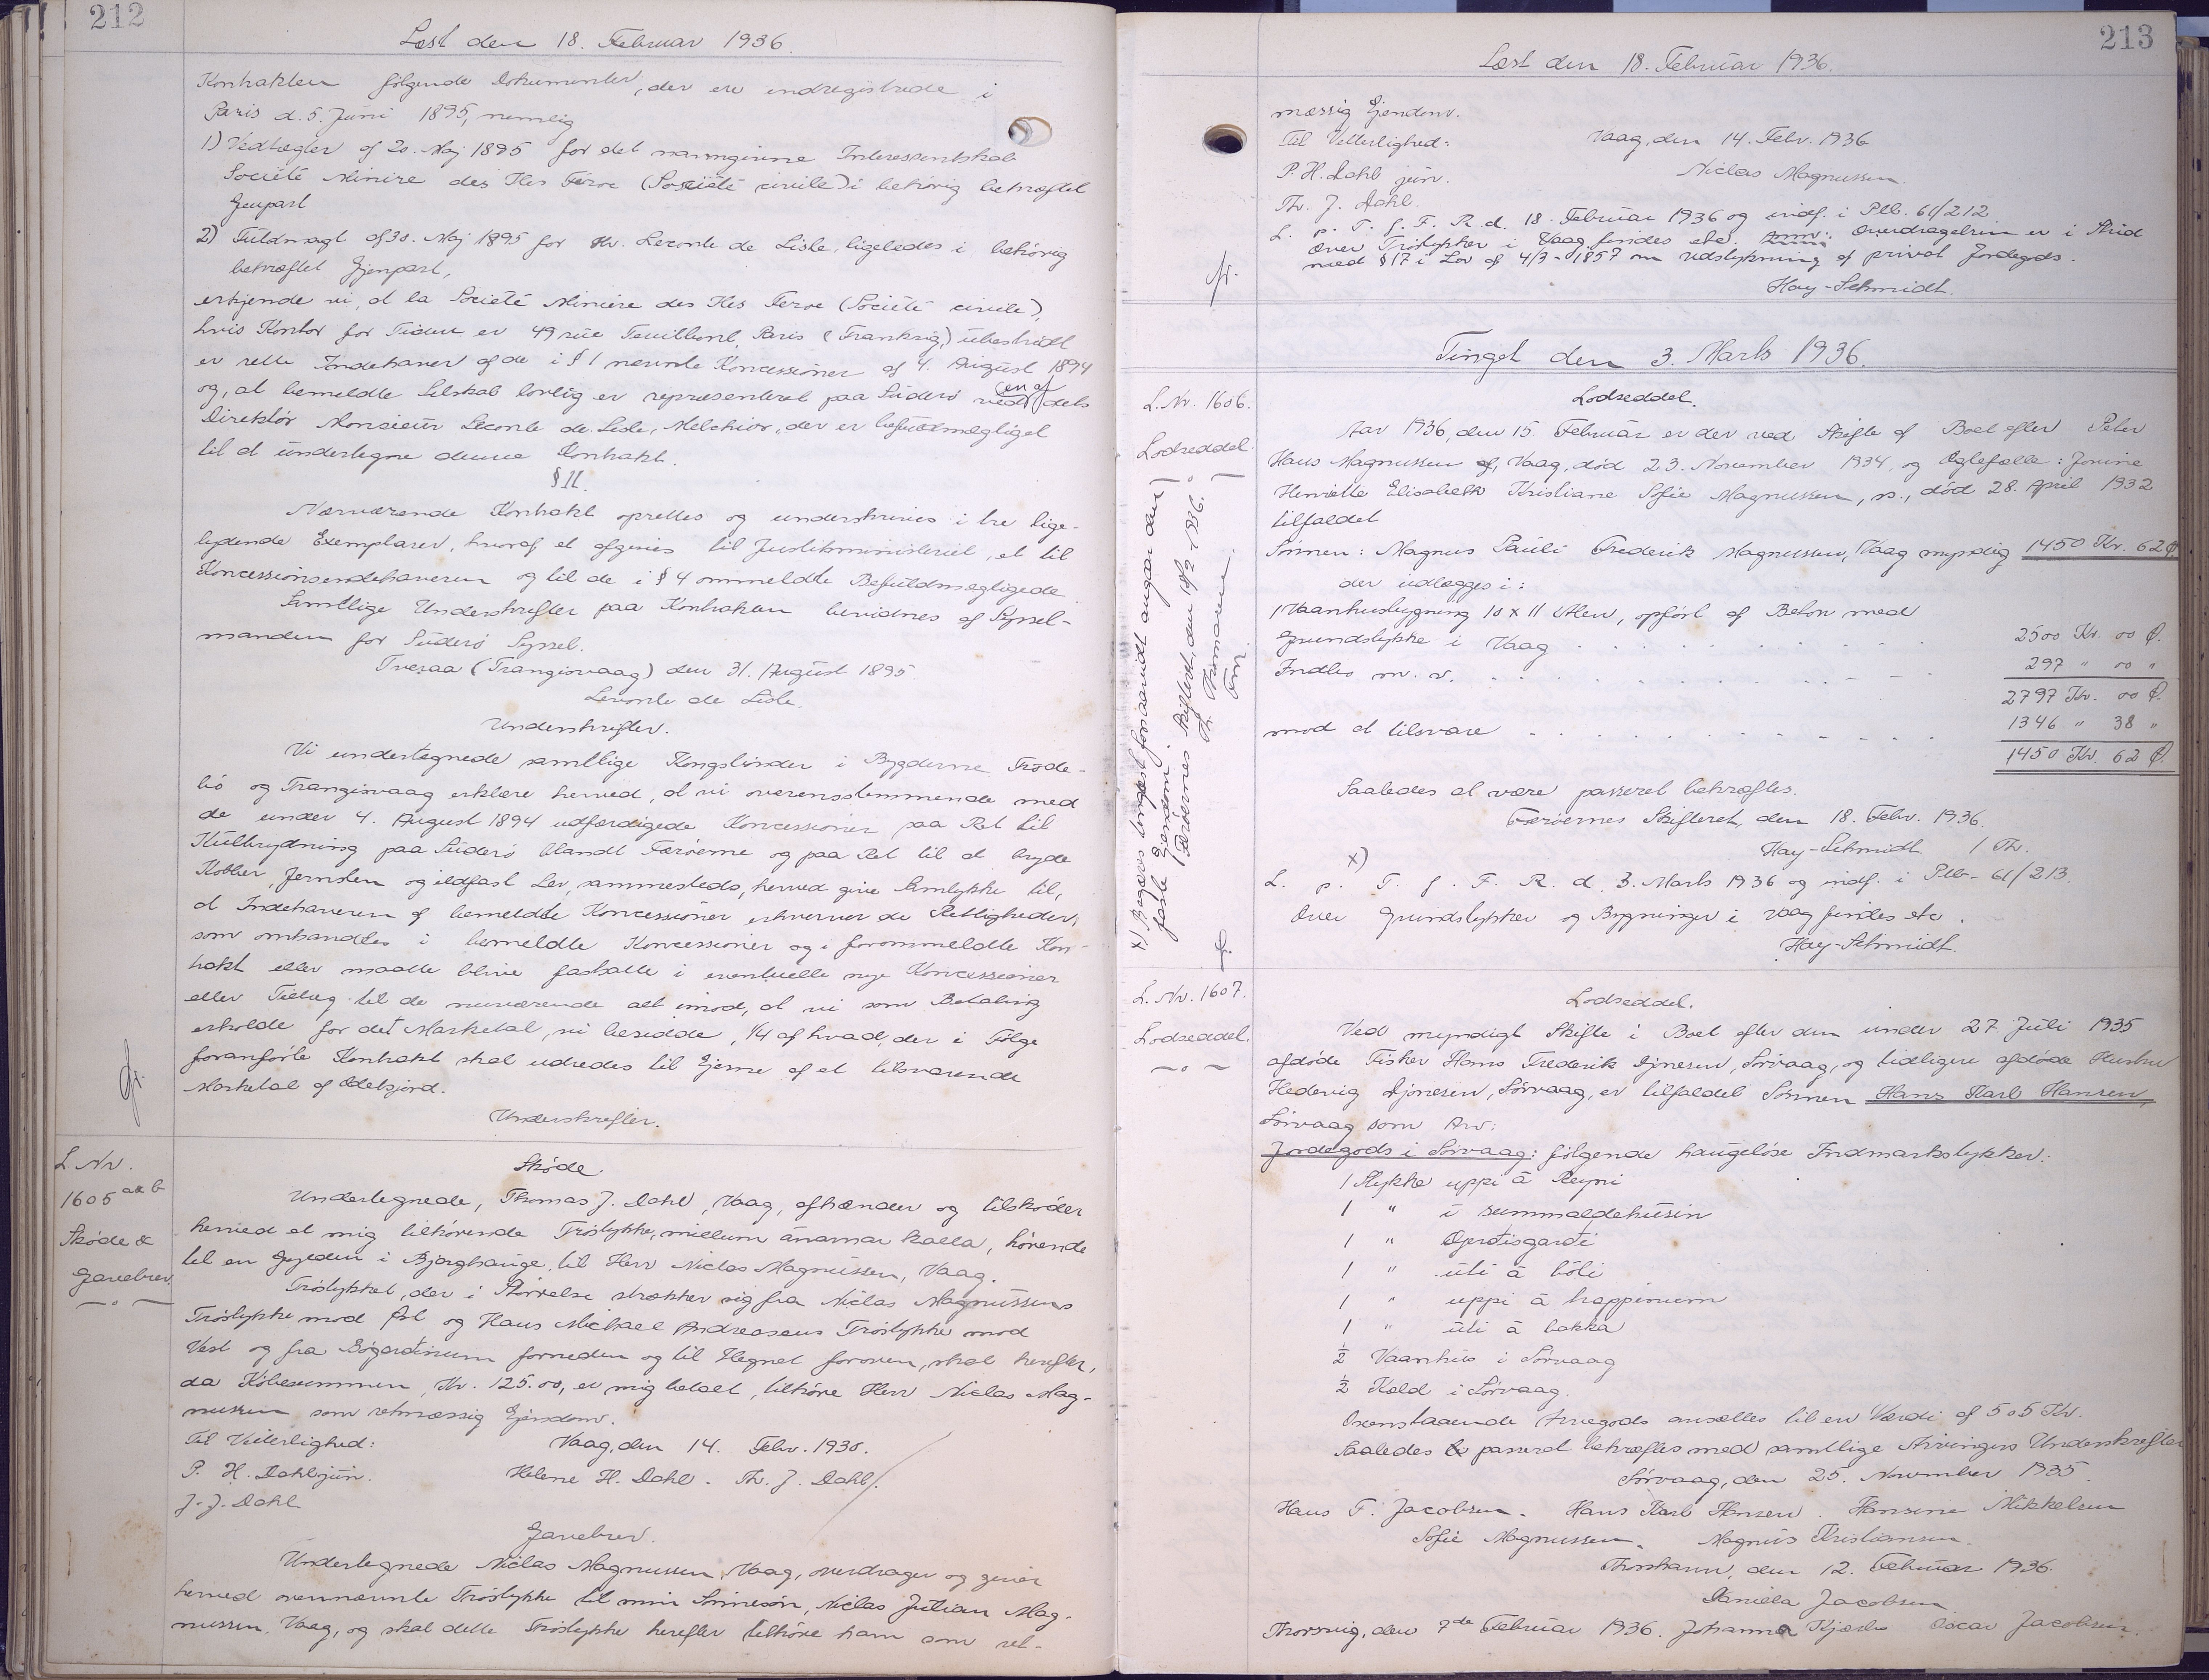 212
Læst den 18. Februar 1936.
Kontrakten følgende Dokumenter, der ere indregistrede i
Paris d. 5. Juni 1895, nemlig
1) Vedtægter af 20. Maj 1895 for det navngivne Interessentskab
Société Minire des Iles Feroe (Société civile) i behørig bekræftet
Genpart
2) Fuldmagt af 30. Maj 1895 for Hr. Leconte de Lisle, ligeledes i behørig
bekræftet Gjenpart,
erkjende vi, at la Société Miniere des Iles Feroe (Société civile),
hvis Kontor for Tiden er 49 rue Taitbout, Paris (Frankrig,) ubestridt
er rette Indehaver af de i § 1 nævnte Koncessioner af 4. August 1894
og, at bemeldte Selskab lovlig er repræsenteret paa Suderø ved (en af) dets
Direktør Monsieur Leconte de Lisle, Melchior, der er befuldmægtiget
til at undertegne denne Kontrakt.
§ 11.
Nærværende Kontrakt oprettes og underskrives i tre lige-
lydende Exemplarer, hvoraf et afgives til Justitsministeriet, et til
Koncessionsindehaveren og til de i § 4 ommeldte Befuldmægtigede.
Samtlige Underskrifter paa Kontrakten bevidnes af Syssel-
manden for Suderø Syssel.
Tveraa (Trangisvaag) den 31. August 1895.
Leconte de Lisle.
Underskrifter.
Vi undertegnede samtlige Kongsbønder i Bygderne Frode-
bø og Trangisvaag erklære herved, at vi overensstemmende med
de under 4. August 1894 udfærdigede Koncessioner paa Ret til
Kulbrydning paa Suderø blandt Færøerne og paa Ret til at bryde
Kobber, Jernsten og ildfast Ler, sammesteds, herved give Samtykke til,
at Indehaveren af bemeldte Koncessioner erhverver de Rettigheder,
som omhandles i bemeldte Koncessioner og i forommeldte Kon-
trakt eller maatte blive fastsatte i eventuelle nye Koncessioner
eller Tillæg til de nuværende alt imod, at vi som Betaling
erholde for det Marketal, vi besidde, 1/4 af hvad, der i Følge
foranførte Kontrakt skal udredes til Ejerne af et tilsvarende
Marketal af Odelsjord.
Underskrifter.
L. Nr.
1605 a & b
Skøde &
Gavebrev.
Skøde.
Undertegnede, Thomas J. Dahl, Vaag, afhænder og tilskøder
herved et mig tilhørende Trøstykke, millum ánarnar kalla, hørende
til en Gylden i Bjarghauge, til Herr Niclas Magnussen, Vaag.
Trøstykket, der i Størrelse strækker sig fra Niclas Magnussens
Trøstykke mod Øst og Hans Michael Andreasens Trøstykke mod
Vest og fra Bøgardinum forneden og til Hegnet foroven, skal herefter,
da Købesummen, Kr. 125.00, er mig betalt, tilhøre Herr Niclas Mag-
nussen som retmæssig Ejendom.
Til Vitterlighed:
Vaag, den 14. Febr. 1930.
P. H. Dahl jun.
Helene H. Dahl. Th. J. Dahl.
J. J. Dahl
Gavebrev.
Undertegnede Niclas Magnussen, Vaag, overdrager og giver
herved ovennævnte Trøstykke til min Sønnesøn, Niclas Julian Mag-
nussen, Vaag, og skal dette Trøstykke herefter tilhøre ham som ret-
213
Læst den 18. Februar 1936.
mæssig Ejendom.
Til Vitterlighed:
Vaag, den 14. Febr. 1936
P. H. Dahl jun.
Niclas Magnussen.
Th. J. Dahl.
L. p. T. f. F. R. d. 18. Februar 1936 og indf. i Ptb. 61/212
Over Trøstykker i Vaag findes etc. Anm: Overdragelsen er i Strid
med § 17 i Lov af 4/3-1857 om Udstykning af privat Jordegods.
Hay-Schmidt.
Tinget den 3. Marts 1936.
L. Nr. 1606.
Lodseddel.
Lodseddel.
Aar 1936, den 15. Februar er der ved Skifte af Boet efter Peter
Hans Magnussen af, Vaag, død 23. November 1934, og Ægtefælle: Jovine
Henriette Elisabeth Kristiane Sofie Magnussen, s., død 28. April 1932
tilfaldet
Sønnen: Magnus Pauli Frederik Magnussen, Vaag myndig 1450 Kr. 62 Ø
der udlægges i:
1 Vaanhusbygning 10 x 11 Alen, opført af Beton med
Grundstykke i Vaag 2500 Kr. 00 Ø.
Indbo m. v. 297 " 00 "
2797 Kr. 00 Ø.
mod at tilsvare 1346 " 38 "
1450 Kr. 62 Ø.
Saaledes at være passeret bekræftes.
Færøernes Skifteret, den 18. Febr. 1936.
Hay-Schmidt / Th.
x)
L. p. T. f. F. R. d. 3. Marts 1936 og indf. i Ptb- 61/213.
Over Grundstykker og Bygninger i Vaag findes etc.
Hay-Schmidt.
x) Begæres tinglæst forsaavidt angaar den
faste Ejendom.
Færøernes Skifteret, den 18/2 1936.
Th. Thomassen
Fm.
L. Nr. 1607.
Lodseddel.
Lodseddel.
Ved myndigt Skifte i Boet efter den under 27 Juli 1935
afdøde Fisker Hans Frederik Djonesen, Sørvaag, og tidligere afdøde Hustru
Hedevig Djonesen, Sørvaag, er tilfaldet Sønnen Hans Karl Hansen,
Sørvaag som Arv:
Jordegods i Sørvaag: følgende haugeløse Indmarksstykker:
1 Stykke uppi á Reyni
1 " i summaldehusin
1 " Gerðisgarði
1 " úti á bóli
1 " uppi á krappinum
1 " úti á bakka
½ Vaanhus i Sørvaag
½ Kæld i Sørvaag.
Ovenstaaende Arvegods ansættes til en Værdi af 505 Kr.
Saaledes passeret bekræftes med samtlige Arvingers Underskrifter
Sørvaag, den 25. November 1935.
Hans T. Jacobsen. Hans Karl Hansen. Hansine Mikkelsen
Sofie Magnussen. Magnus Kristiansen.
Thorshavn, den 12. Februar 1936.
Daniella Jacobsen
Thorsvig, den 9de Februar 1936. Johanna Kjærbo Oscar Jacobsen.